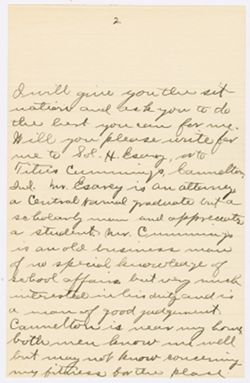 2
I will give you the sit
uation and ask you to do
the best you can for me.
Will you please write for
me to Sol. H. Esarey, or to
Titus Cummings, Cannelton,
Ind. Mr. Esarey is an attorney
a Central Normal graduate but a
scholarly man and appreciates
a student. Mr. Cummings
is an old business man
of no special knowledge of
school affairs but very much
interested in his duty and is
a man of good judgement.
Cannelton is near my home
both men know me well
but may not know concerning
my fitness for the place